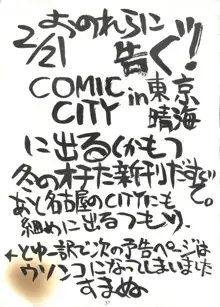 おのれらに
2/21 告ぐ!!
COMIC
CITY in 東京
晴海
に出るくかもつ
冬のオチた新刊だすぞ。
あと名古屋のCITYにも
細めに出るつもり。
←とゆー訳で次の予告ページは
ウソンコになってしまいました
すまぬ